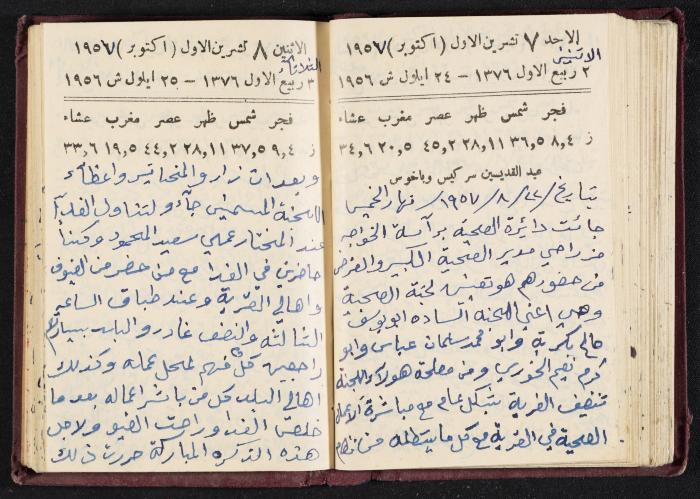 الاحد ٧ تشرين الاول (اكتوبر) ١٩٥٧
الاثنين
٢ ربيع الاول ١٣٧٦ – ٢٤ ايلول ش ١٩٥٦
فجر شمس ظهر عصر مغرب عشاء
ز ٨,٤ ٣٦,٥ ٢٨,١١ ٤٥,٢ ٢٠,٥ ٣٤,٦
عيد القديسين سركيس وباخوس
بتاريخ /٢٢/ ٨/ ١٩٥٧/ نهار الخميس
جائت دائرة الصحية برآسة الخواجه
مدير الصحية الكبير والغرض
من حضورهم هو تفتيش لجنة الصحية
وهي اعني اللجنه الساده ابو يوسف
صالح بكرية وابو محمد سلمان عباس وابو
كرم نعيم الخوري ومن مصلحة هولاء اللجنة
تنضيف القرية بشكل عام مع مباشرة الاعمال
الصحية في القرية مع كل ما يتطلبه من نظام
الاثنين ٨ تشرين الاول (اكتوبر) ١٩٥٧
الثلاثاء
٣ ربيع الاول ١٣٧٦ – ٢٥ ايلول ش ١٩٥٦
فجر شمس ظهر عصر مغرب عشاء
ز ٩,٤ ٣٧,٥ ٢٨,١١ ٤٤,٢ ١٩,٥ ٣٣,٦
وبعد ان زارو المختاتير واعظآء
اللجنة المسمين جآءو لتناول الغدآ
عند المختار عملي سعيد المحمود وكنا
حاضرين في الغدا مع من حضر من الضيوف
واهالي القرية وعند طباق الساعه
الثالثه والنصف غادرو البلد بسيارتهم
راجعين كل منهم لمحل عمله وكذلك
اهالي البلد كل من باشر اعماله بعد ما
خلصن الغدا وراحت الضيو ولاجل
هذه الذكره المباركة حررت ذلك